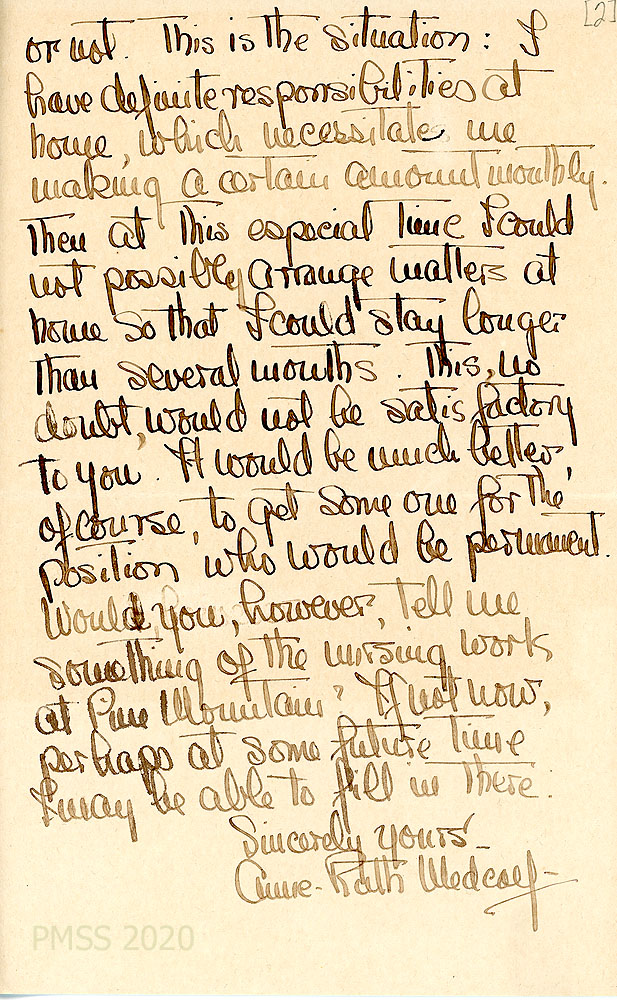 [2]
or not. This is the situation: I
have definite responsibilities at
home, which necessitate me
making a certain amount monthly.
Then at this especial time I could
not possibly arrange matters at
home so that I could stay longer
than several months. This, no
doubt, would not be satisfactory
to you. It would be much better,
of course, to get some one for the
position who would be permanent.
Would you, however, tell me
something of the nursing work
at Pine Mountain? If not now,
perhaps at some future time
I may be able to fill in there.
Sincerely yours-
Anne-Ruth Medcalf-
PMSS 2020